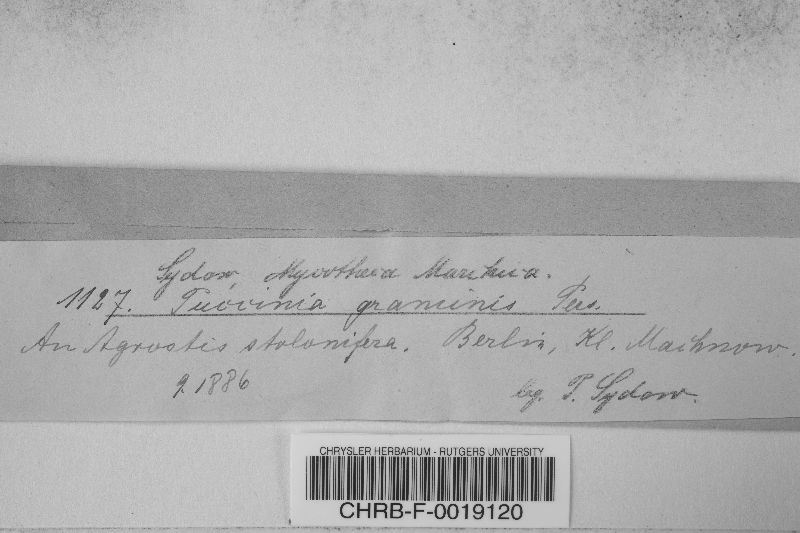 Sydow, Mycotheca Marchica.
1127. Puccinia graminis Pers.
An Agrostis stolonifera. Berlin, Kl. Machnow.
9. 1886 leg. P. Sydow.
CHRYSLER HERBARIUM - RUTGERS UNIVERSITY
CHRB-F-0019120